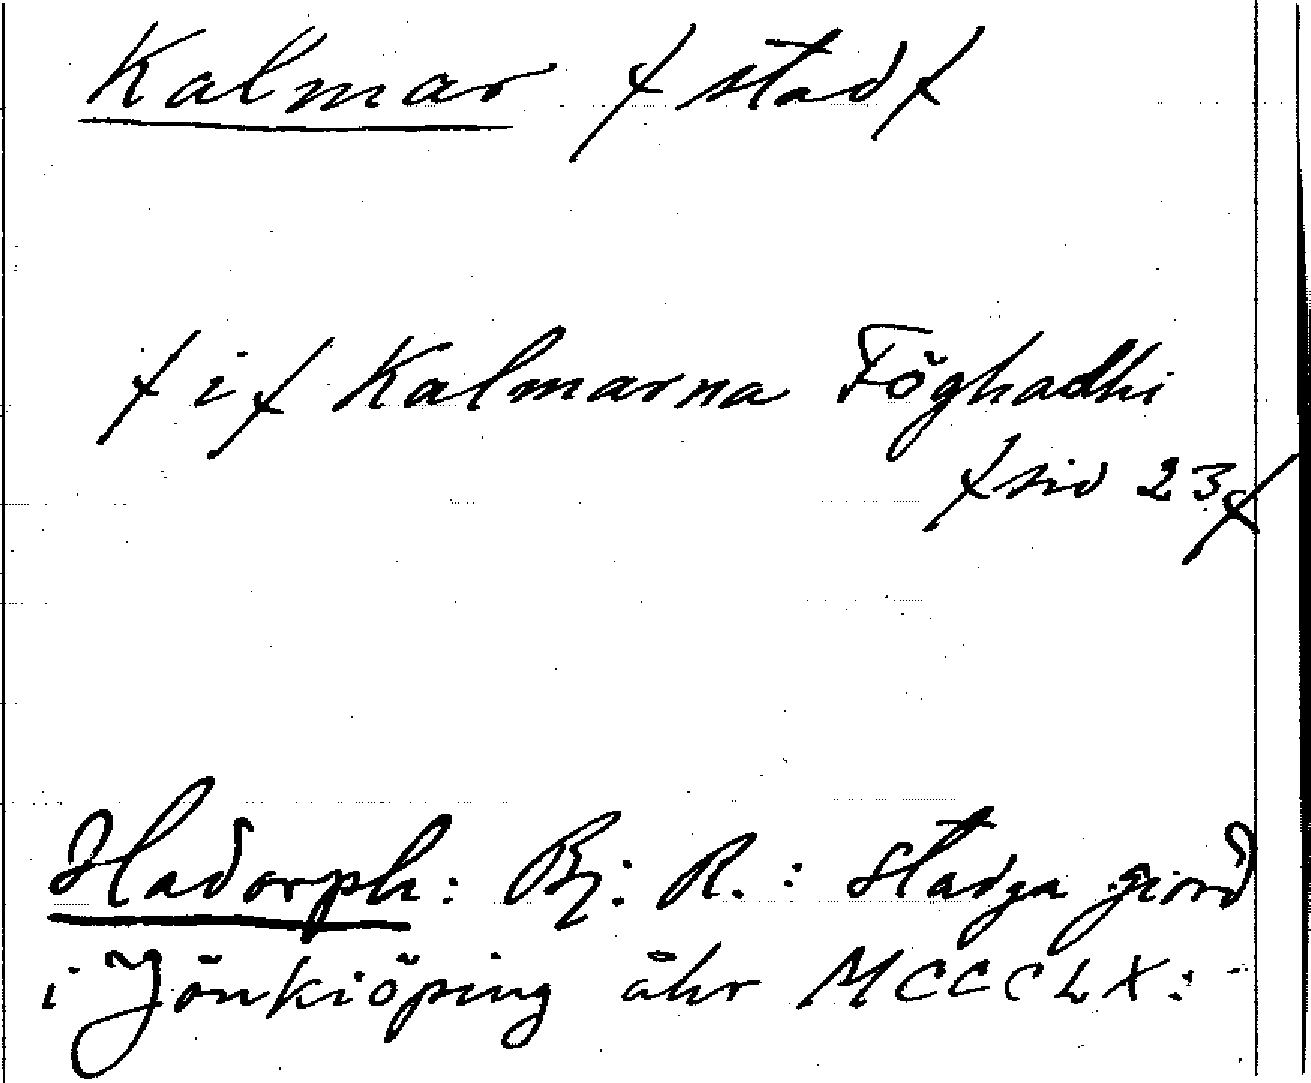 Kalmar / stad /
/ i / Kalmarna Föghadhi
/ sid 23 /
Hadorph: Bj: R.: Stadga giord
i Jönkiöping åhr MCCCLX:-